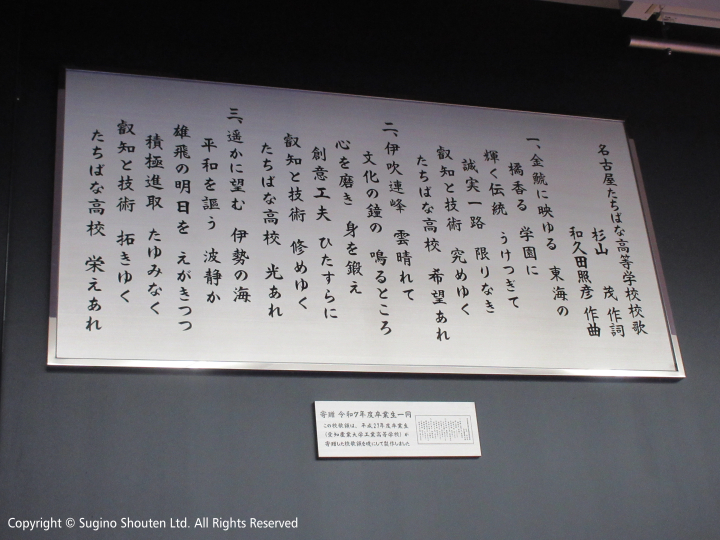 名古屋たちばな高等学校校歌
杉山 茂 作詞
和久田照彦 作曲
一、金鯱に映ゆる 東海の
橘香る 学園に
輝く伝統 うけつぎて
誠実一路 限りなき
叡知と技術 究めゆく
たちばな高校 希望あれ
二、伊吹連峰 雲晴れて
文化の鐘の 鳴るところ
心を磨き 身を鍛え
創意工夫 ひたすらに
叡知と技術 修めゆく
たちばな高校 光あれ
三、遥かに望む 伊勢の海
平和を謳う 波静か
雄飛の明日を えがきつつ
積極進取 たゆみなく
叡知と技術 拓きゆく
たちばな高校 栄えあれ
寄贈 令和7年度卒業生一同
この校歌額は、平成27年度卒業生
(愛知産業大学工業高等学校)が
寄贈した校歌額を基にして製作しました
Copyright © Sugino Shouten Ltd. All Rights Reserved